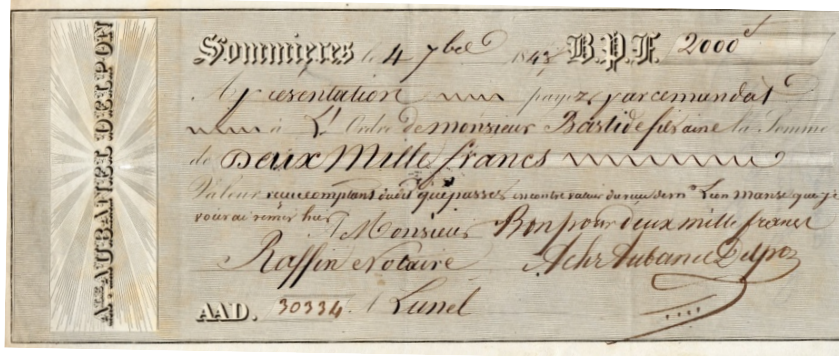 A^TRE AUBANEL DELPON
Sommières le 4 7bre 1843 B.P.F. 2000 f
A présentation payez par ce mandat
à L' Ordre de monsieur Bastide fils ainé la Somme
de Deux Mille francs
Valeur reçu comptant que passerez en contre valeur du
vous ai remis hier
Monsieur Bon pour deux mille francs
Raffin Notaire Achr Aubanel Delpon
AAD. 30334. à Lunel